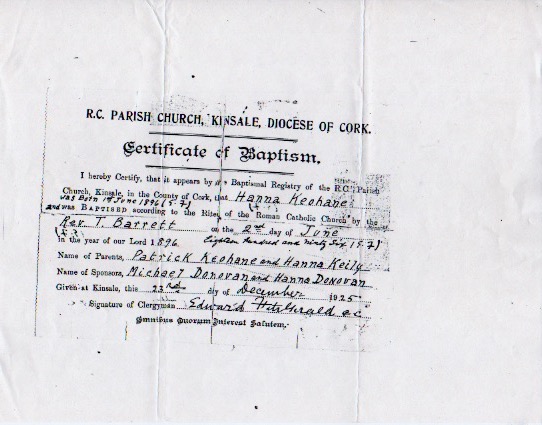 R.C. PARISH CHURCH, KINSALE, DIOCESE OF CORK.
Certificate of Baptism.
I hereby Certify, that it appears by the Baptismal Registry of the R.C. Parish
Church, Kinsale, in the County of Cork, that Hanna Keohane
was Born 1st June 1896
and was BAPTISED according to the Rites of the Roman Catholic Church by the
Rev. T. Barrett on the 2nd day of June
in the year of our Lord 1896 Eighteen hundred and ninty Six
Name of Parents, Patrick Keohane and Hanna Keily
Name of Sponsors, Michael Donovan and Hanna Donovan
Given at Kinsale, this 23rd day of December 1925
Signature of Clergyman Edward Fitzgerald cc
Omnibus Quorum Interest Salutem.